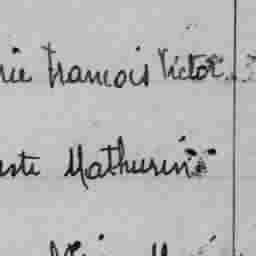 rie Francois Victor
uste Mathurin